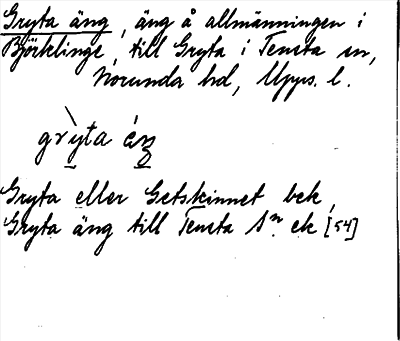 Gryta äng, äng å allmänningen i
Björklinge, till Gryta i Tensta sn,
Norunda hd, Upps. l.
grỳta éŋ
Gryta eller Getskinnet bek,
Gryta äng till Tensta 1ⁿ ek [54]